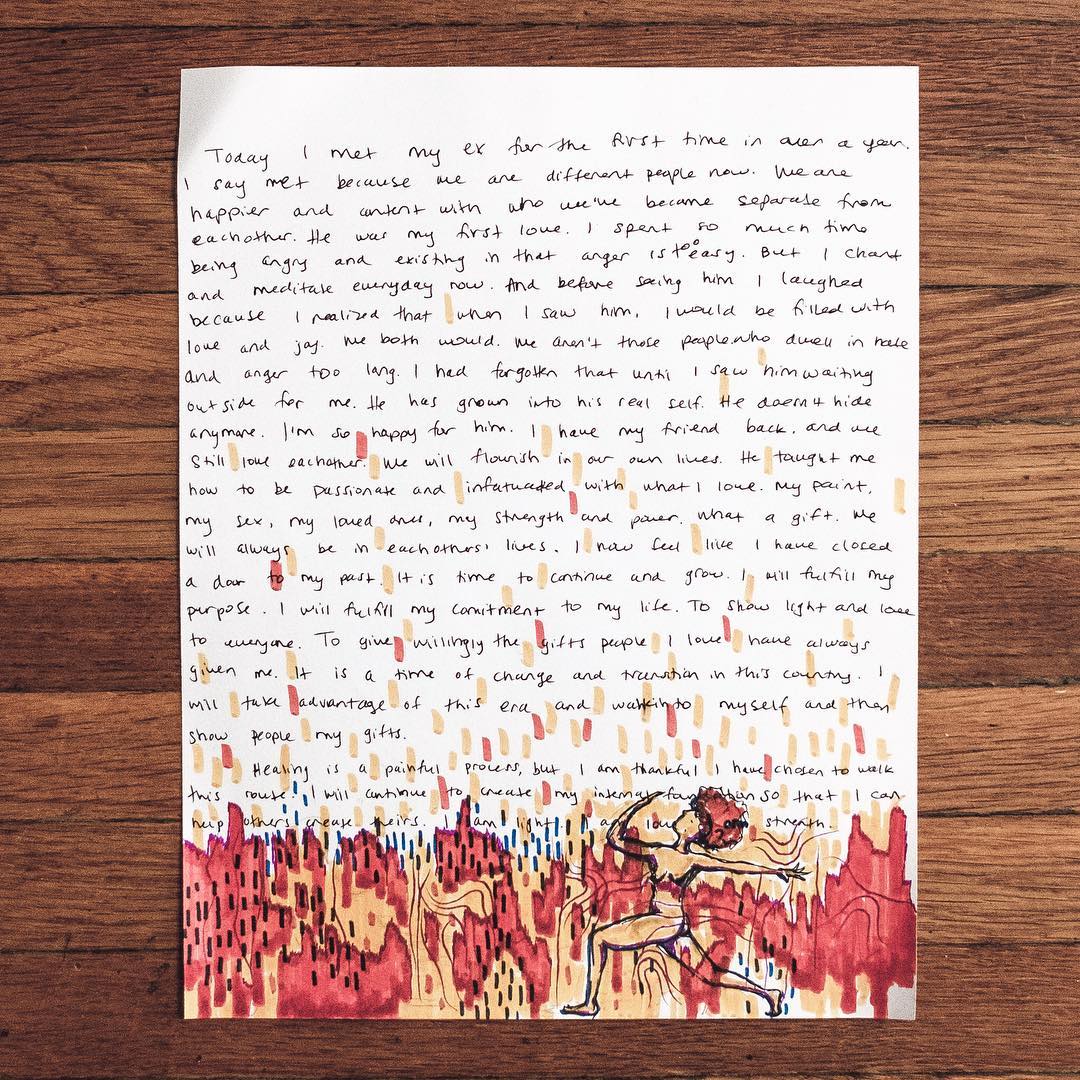 Today I met my ex for the first time in over a year.
I say met because we are different people now. We are
happier and content with who we've became separate from
eachother. He was my first love. I spent so much time
being angry and existing in that anger is too easy. But I chant
and meditate everyday now. And before seeing him I laughed
because I realized that when I saw him, I would be filled with
love and joy. We both would. We aren't those people who dwell in hate
and anger too long. I had forgotten that until I saw him waiting
outside for me. He has grown into his real self. He doesn't hide
anymore. I'm so happy for him. I have my friend back, and we
still love eachother. We will flourish in our own lives. He taught me
how to be passionate and infatuated with what I love. My paint,
my sex, my loved ones, my strength and power. What a gift. We
will always be in eachothers' lives. I now feel like I have closed
a door to my past. It is time to continue and grow. I will fulfill my
purpose. I will fulfill my comitment to my life. To show light and love
to everyone. To give willingly the gifts people I love have always
given me. It is a time of change and transition in this country. I
will take advantage of this era and walk into myself and then
show people my gifts.
Healing is a painful process, but I am thankful I have chosen to walk
this route. I will continue to create my internal foundation so that I can
help others create theirs. I am light. I am love. I am strength.